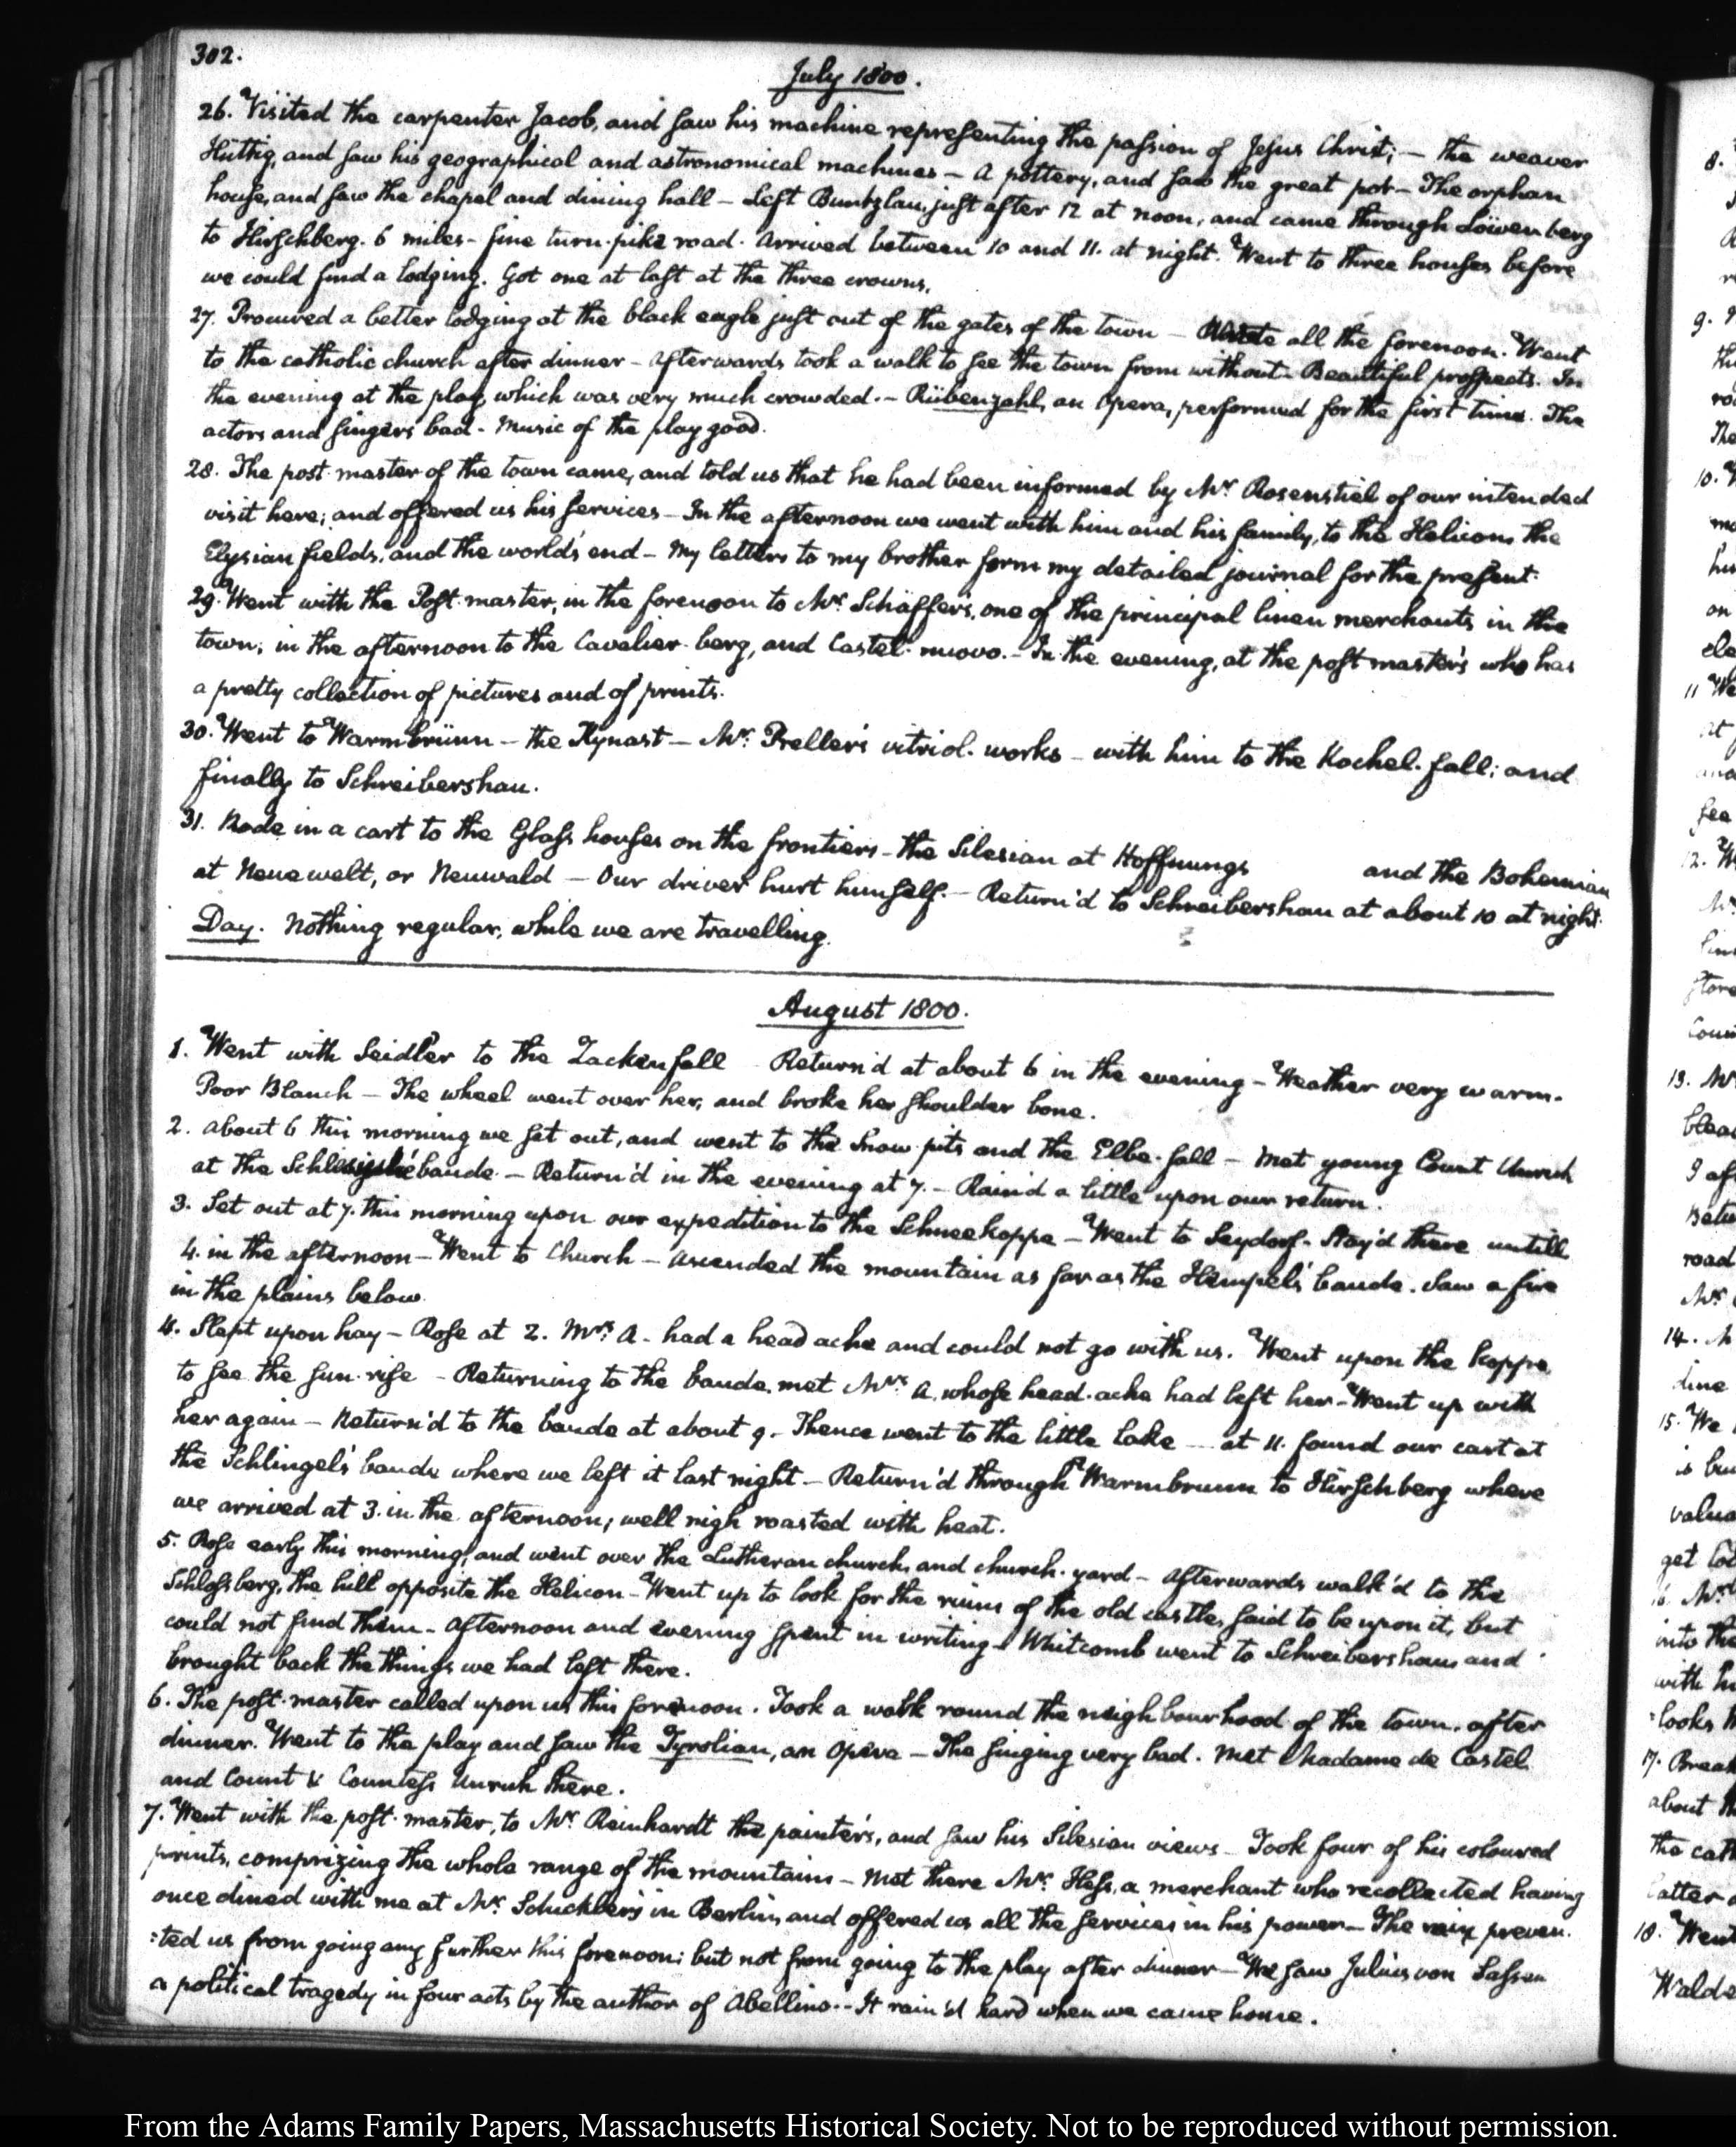 302.
July 1800.
26. Visited the carpenter Jacob, and saw his machine representing the passion of Jesus Christ; — the weaver
Hüttig, and saw his geographical and astronomical machines — A pottery, and saw the great pot — The orphan
house, and saw the chapel and dining hall — Left Buntzlau, just after 12 at noon, and came through Löwenberg
to Hirschberg. 6 miles - fine turn-pike road. Arrived between 10 and 11. at night. Went to three houses before
we could find a lodging. Got one at last at the three crowns.
27. Procured a better lodging at the black eagle just out of the gates of the town — Wrote all the forenoon. Went
to the catholic church after dinner — afterwards took a walk to see the town from without — Beautiful prospects. In
the evening at the play, which was very much crowded. — Rübenzahl, an Opera, performed for the first time. The
actors and singers bad - Music of the play good.
28. The post-master of the town came, and told us that he had been informed by Mr. Rosenstiel of our intended
visit here; and offered us his services — In the afternoon we went with him and his family, to the Helicon, the
Elysian fields, and the world's end — My letters to my brother form my detailed journal for the present.
29. Went with the Post-master, in the forenoon to Mr. Schäffer's, one of the principal linen merchants in the
town; in the afternoon to the Cavalier-berg, and Castel-nuovo. — In the evening, at the post-master's who has
a pretty collection of pictures and of prints.
30. Went to Warmbrünn — the Kynast — Mr. Preller's vitriol-works — with him to the Kochel-fall; and
finally to Schreibershau.
31. Rode in a cart to the Glass houses on the frontiers — the Silesian at Hoffnungs and the Bohemian
at Neuewelt, or Neuwald — Our driver hurt himself. — Return'd to Schreibershau at about 10 at night.
Day. Nothing regular, while we are travelling.
August 1800.
1. Went with Seidler to the Zackenfall Return'd at about 6 in the evening — Weather very warm.
Poor Blanch — The wheel went over her, and broke her shoulder bone.
2. About 6 this morning we set out, and went to the Snow-pits and the Elbe-fall — Met young Count Unruh
at the baude — Return'd in the evening at 7. — Rain'd a little upon our return.
3. Set out at 7. this morning upon our expedition to the Schneekoppe — Went to Seydorf. Stay'd there untill
4. in the afternoon — Went to Church — ascended the mountain as far as the Hempel's baude. Saw a fire
in the plains below.
4. Slept upon hay — Rose at 2. Mrs. A. had a head ache and could not go with us. Went upon the koppe,
to see the sun-rise — Returning to the baude, met Mrs. A. whose head-ache had left her — Went up with
her again — Return'd to the baude at about 9. Thence went to the little lake — at 11. found our cart at
the Schlingel's baude where we left it last night — Return'd through Warmbrunn to Hirschberg where
we arrived at 3. in the afternoon; well nigh roasted with heat.
5. Rose early this morning, and went over the Lutheran church, and church-yard — Afterwards walk'd to the
Schlossberg, the hill opposite the Helicon — Went up to look for the ruins of the old castle, said to be upon it, but
could not find them — Afternoon and evening spent in writing — Whitcomb went to Schreibershau, and
brought back the things we had left there.
6. The post-master called upon us this forenoon. Took a walk round the neighbourhood of the town, after
dinner. Went to the play and saw the Tyrolian, an Opera — The singing very bad. Met Madame de Castel
and Count & Countess Unruh there.
7. Went with the post-master, to Mr. Reinhardt the painter's, and saw his Silesian views — Took four of his coloured
prints, comprizing the whole range of the mountains — Met there Mr. Hess, a merchant who recollected having
once dined with me at Mr. Schickler's in Berlin, and offered us all the services in his power — The rain preven-
:ted us from going any further this forenoon; but not from going to the play after dinner — We saw Julius von Sassen
a political tragedy in four acts by the author of Abellino. — It rain'd hard when we came home.
From the Adams Family Papers, Massachusetts Historical Society. Not to be reproduced without permission.